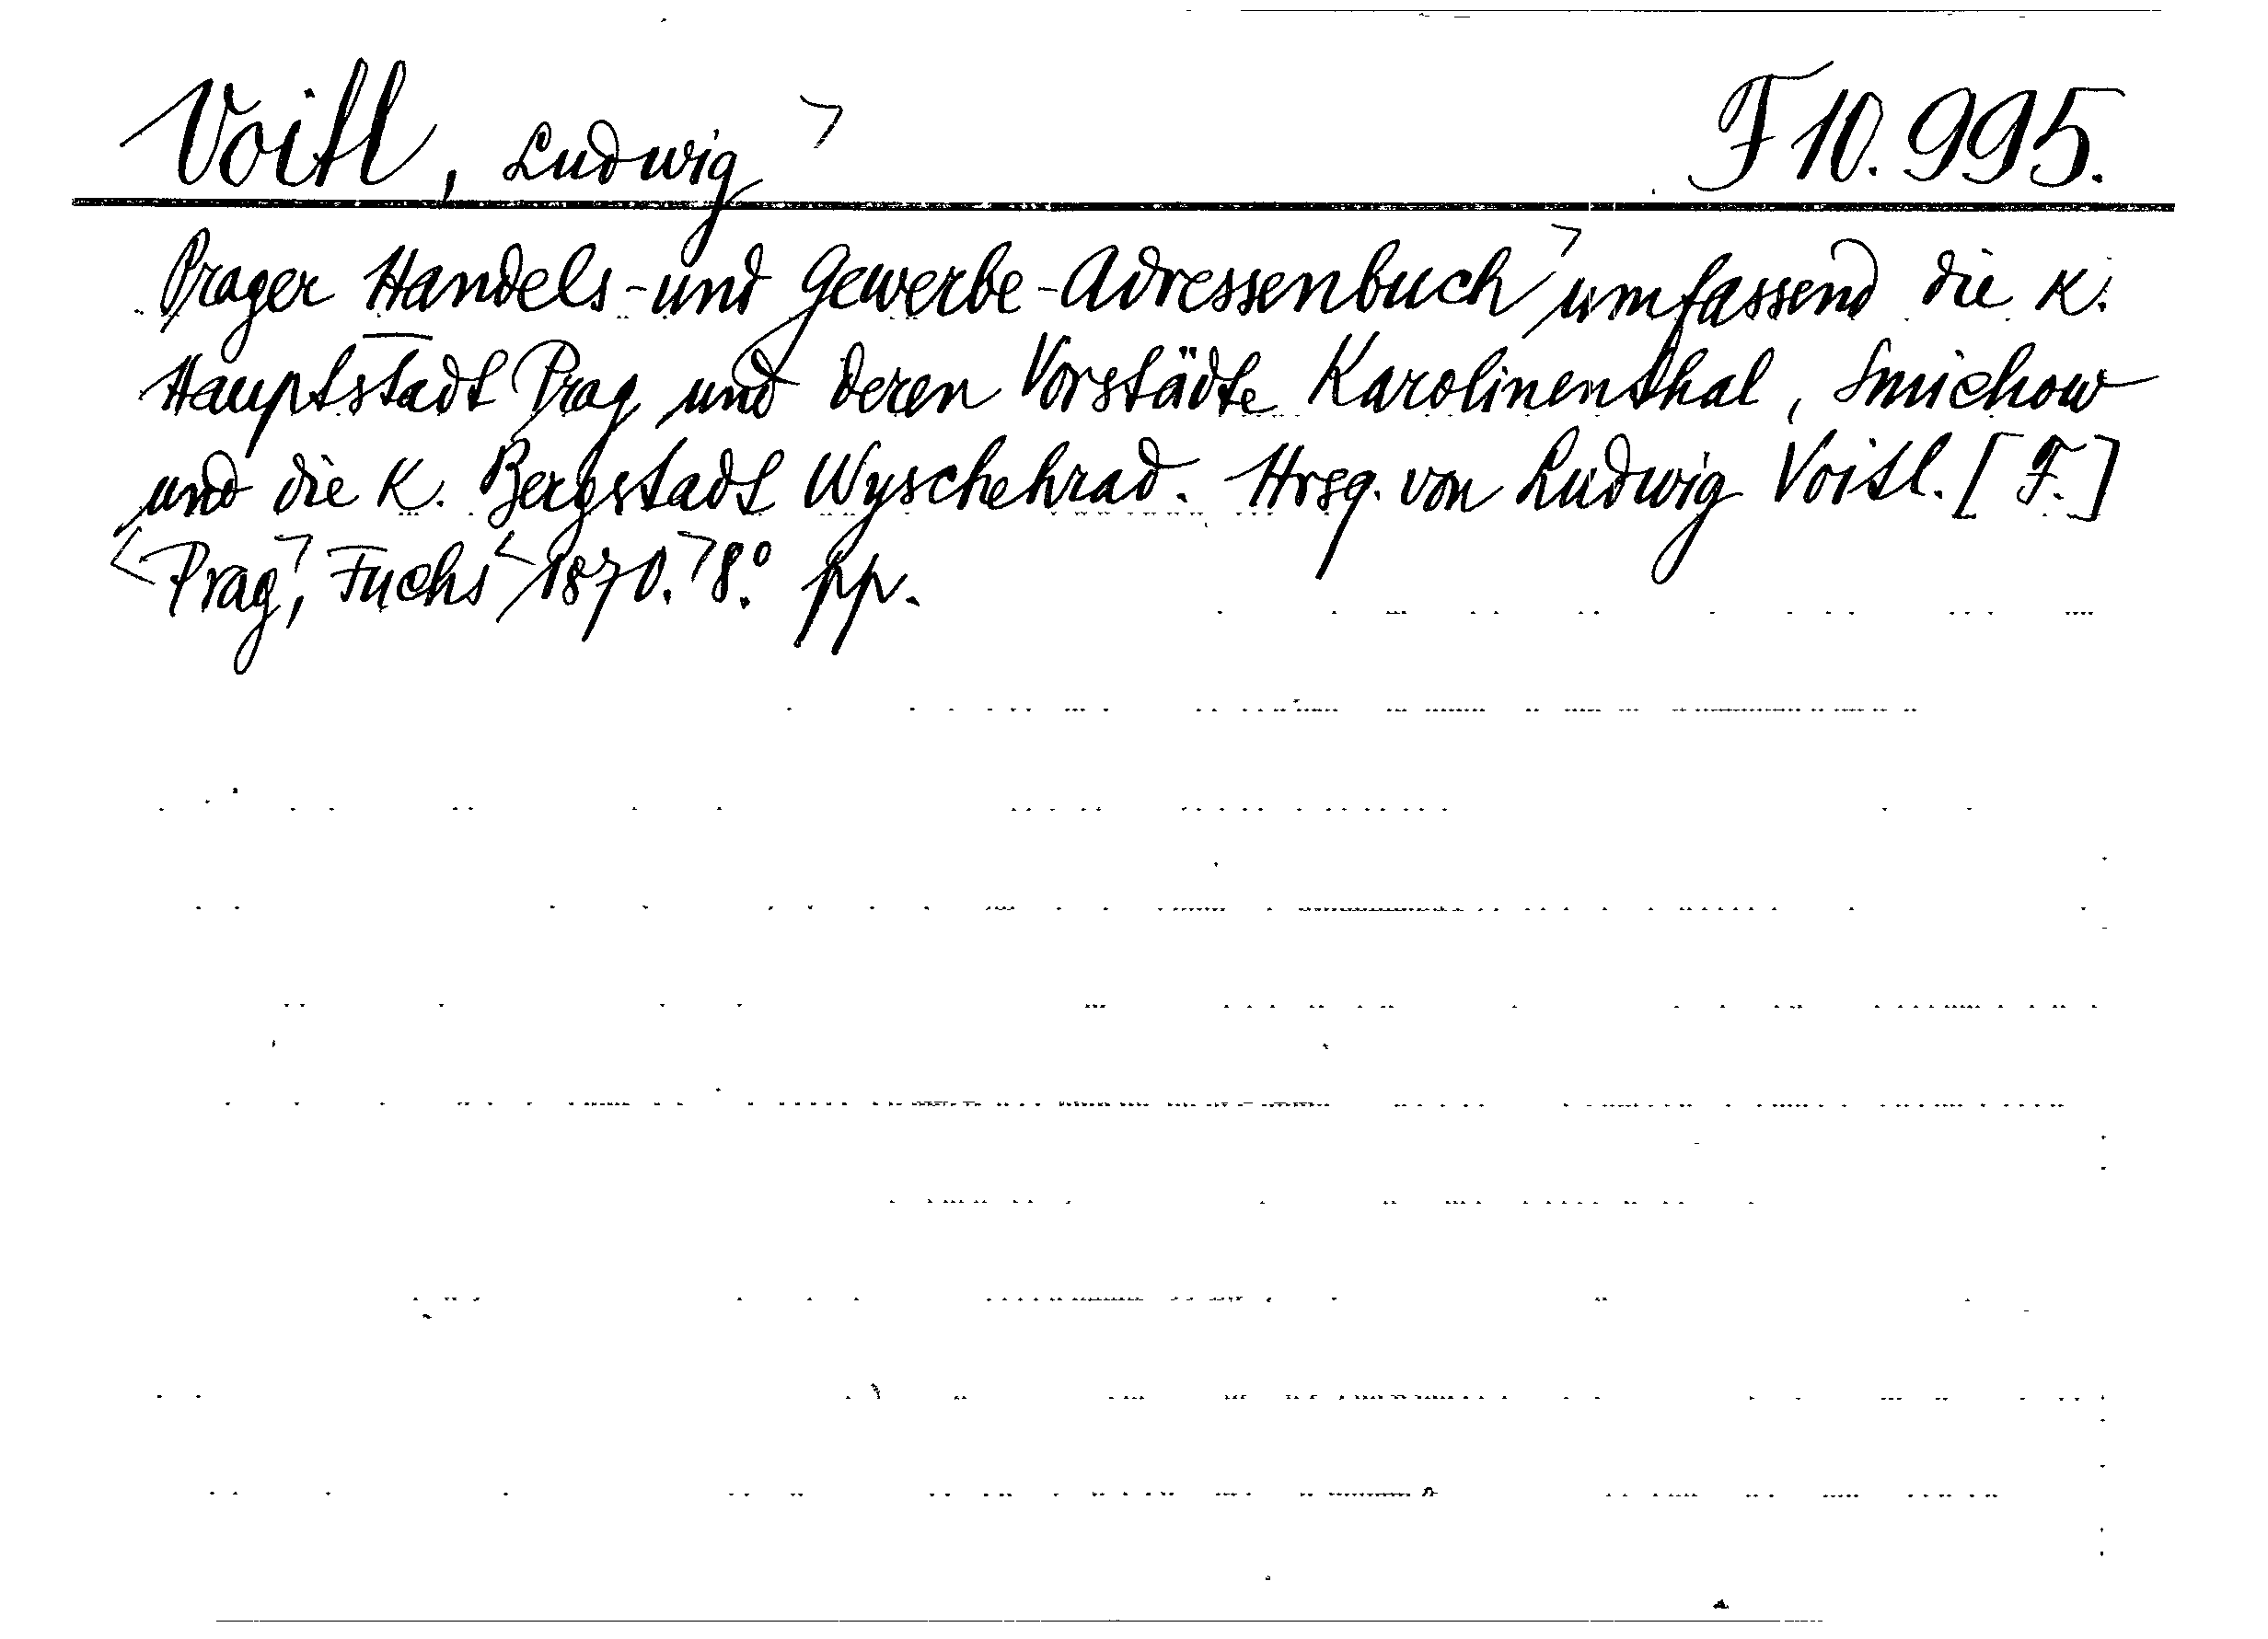 Voitl, Ludwig F 10.995.
Prager Handels- und Gewerbe-Adressenbuch umfassend die K.
Hauptstadt Prag und deren Vorstädte Karolinenthal, Smichow
und die K. Bergstadt Wyschehrad. Hrsg. von Ludwig Voitl. [F.]
Prag, Fuchs 1870. 8.° pp.